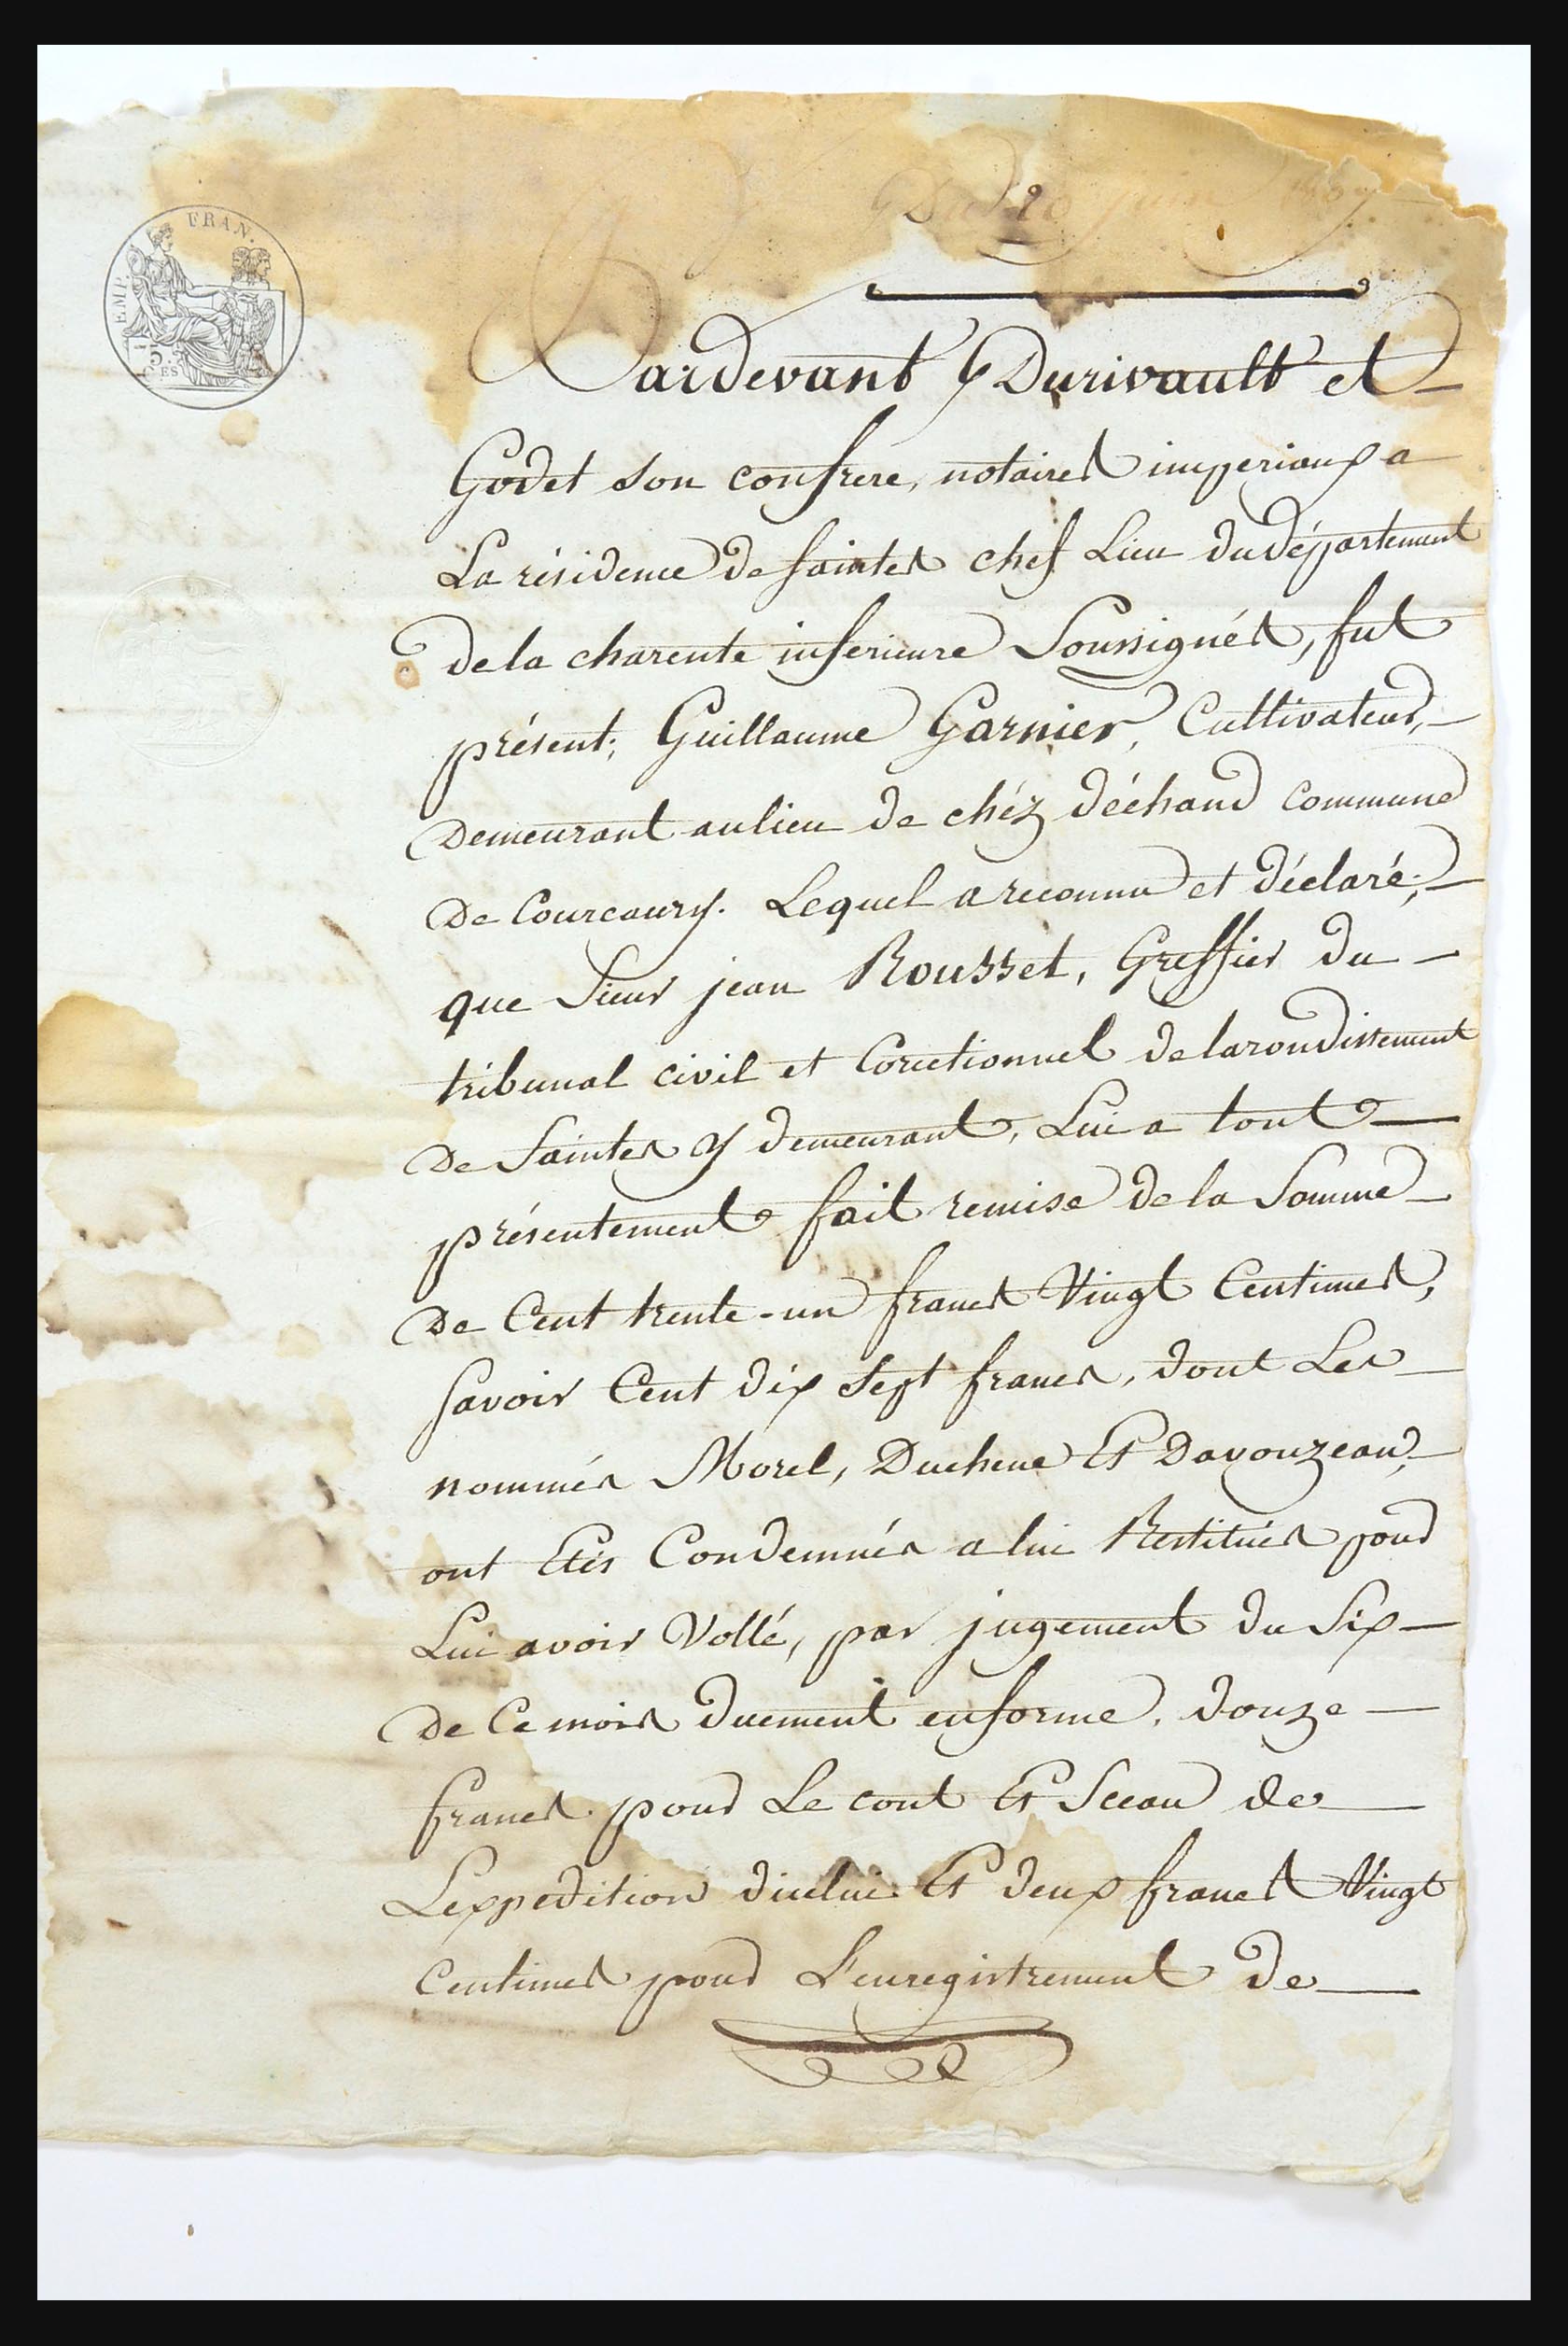 EMP. FRAN.
Du 20 juin
Pardevant Durivault et
Godet son confrere, notaires imperiaux a
La résidence de saintes chef Lieu du département
de la charente inferieure Soussignés, fut
présent; Guillaume Garnier, Cultivateur,
demeurant au lieu de chéz déchand commune
de Courcoury. Lequel a reconnu et déclaré,
que Sieur jean Rousset, Greffier du
tribunal civil et Corectionnel de larondissement
de Saintes y demeurant, Lui a tout
présentement fait remise de la Somme
de Cent trente-un francs Vingt Centimes,
savoir Cent dix sept francs, dont Les
nommés Morel, Duchene Et Davouzeau,
ont Etés Condemnés a lui Restitués pour
Lui avoir Vollé, par jugement du Six
de Ce mois duement en forme, douze
francs pour Le cout Et Sceau de
Lexpedition dicelui Et deux francs Vingt
Centimes pour L'enregistrement de